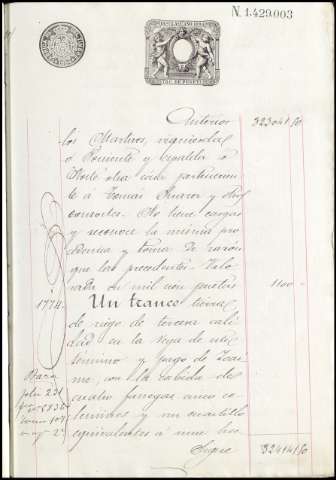 N. 1.429.003
Anterior 323041 50
los Martires, izquierda
o Poniente y espalda o
Norte otra casa perteneciente
á Tomás Suarez y otros
consortes. No tiene cargas
y reconoce la misma pro
cedencia y toma de razon
que las precedentes. Valo
rada en mil cien pesetas 1100
1774. Un trance tierra
de riego de tercera cali
dad en la vega de este
termino y pago de
con la cabida de
cuatro fanegas, once ce
lemines y un cuartillo
equivalentes á una hec
Baza
folio 221
Sigue 324141 50